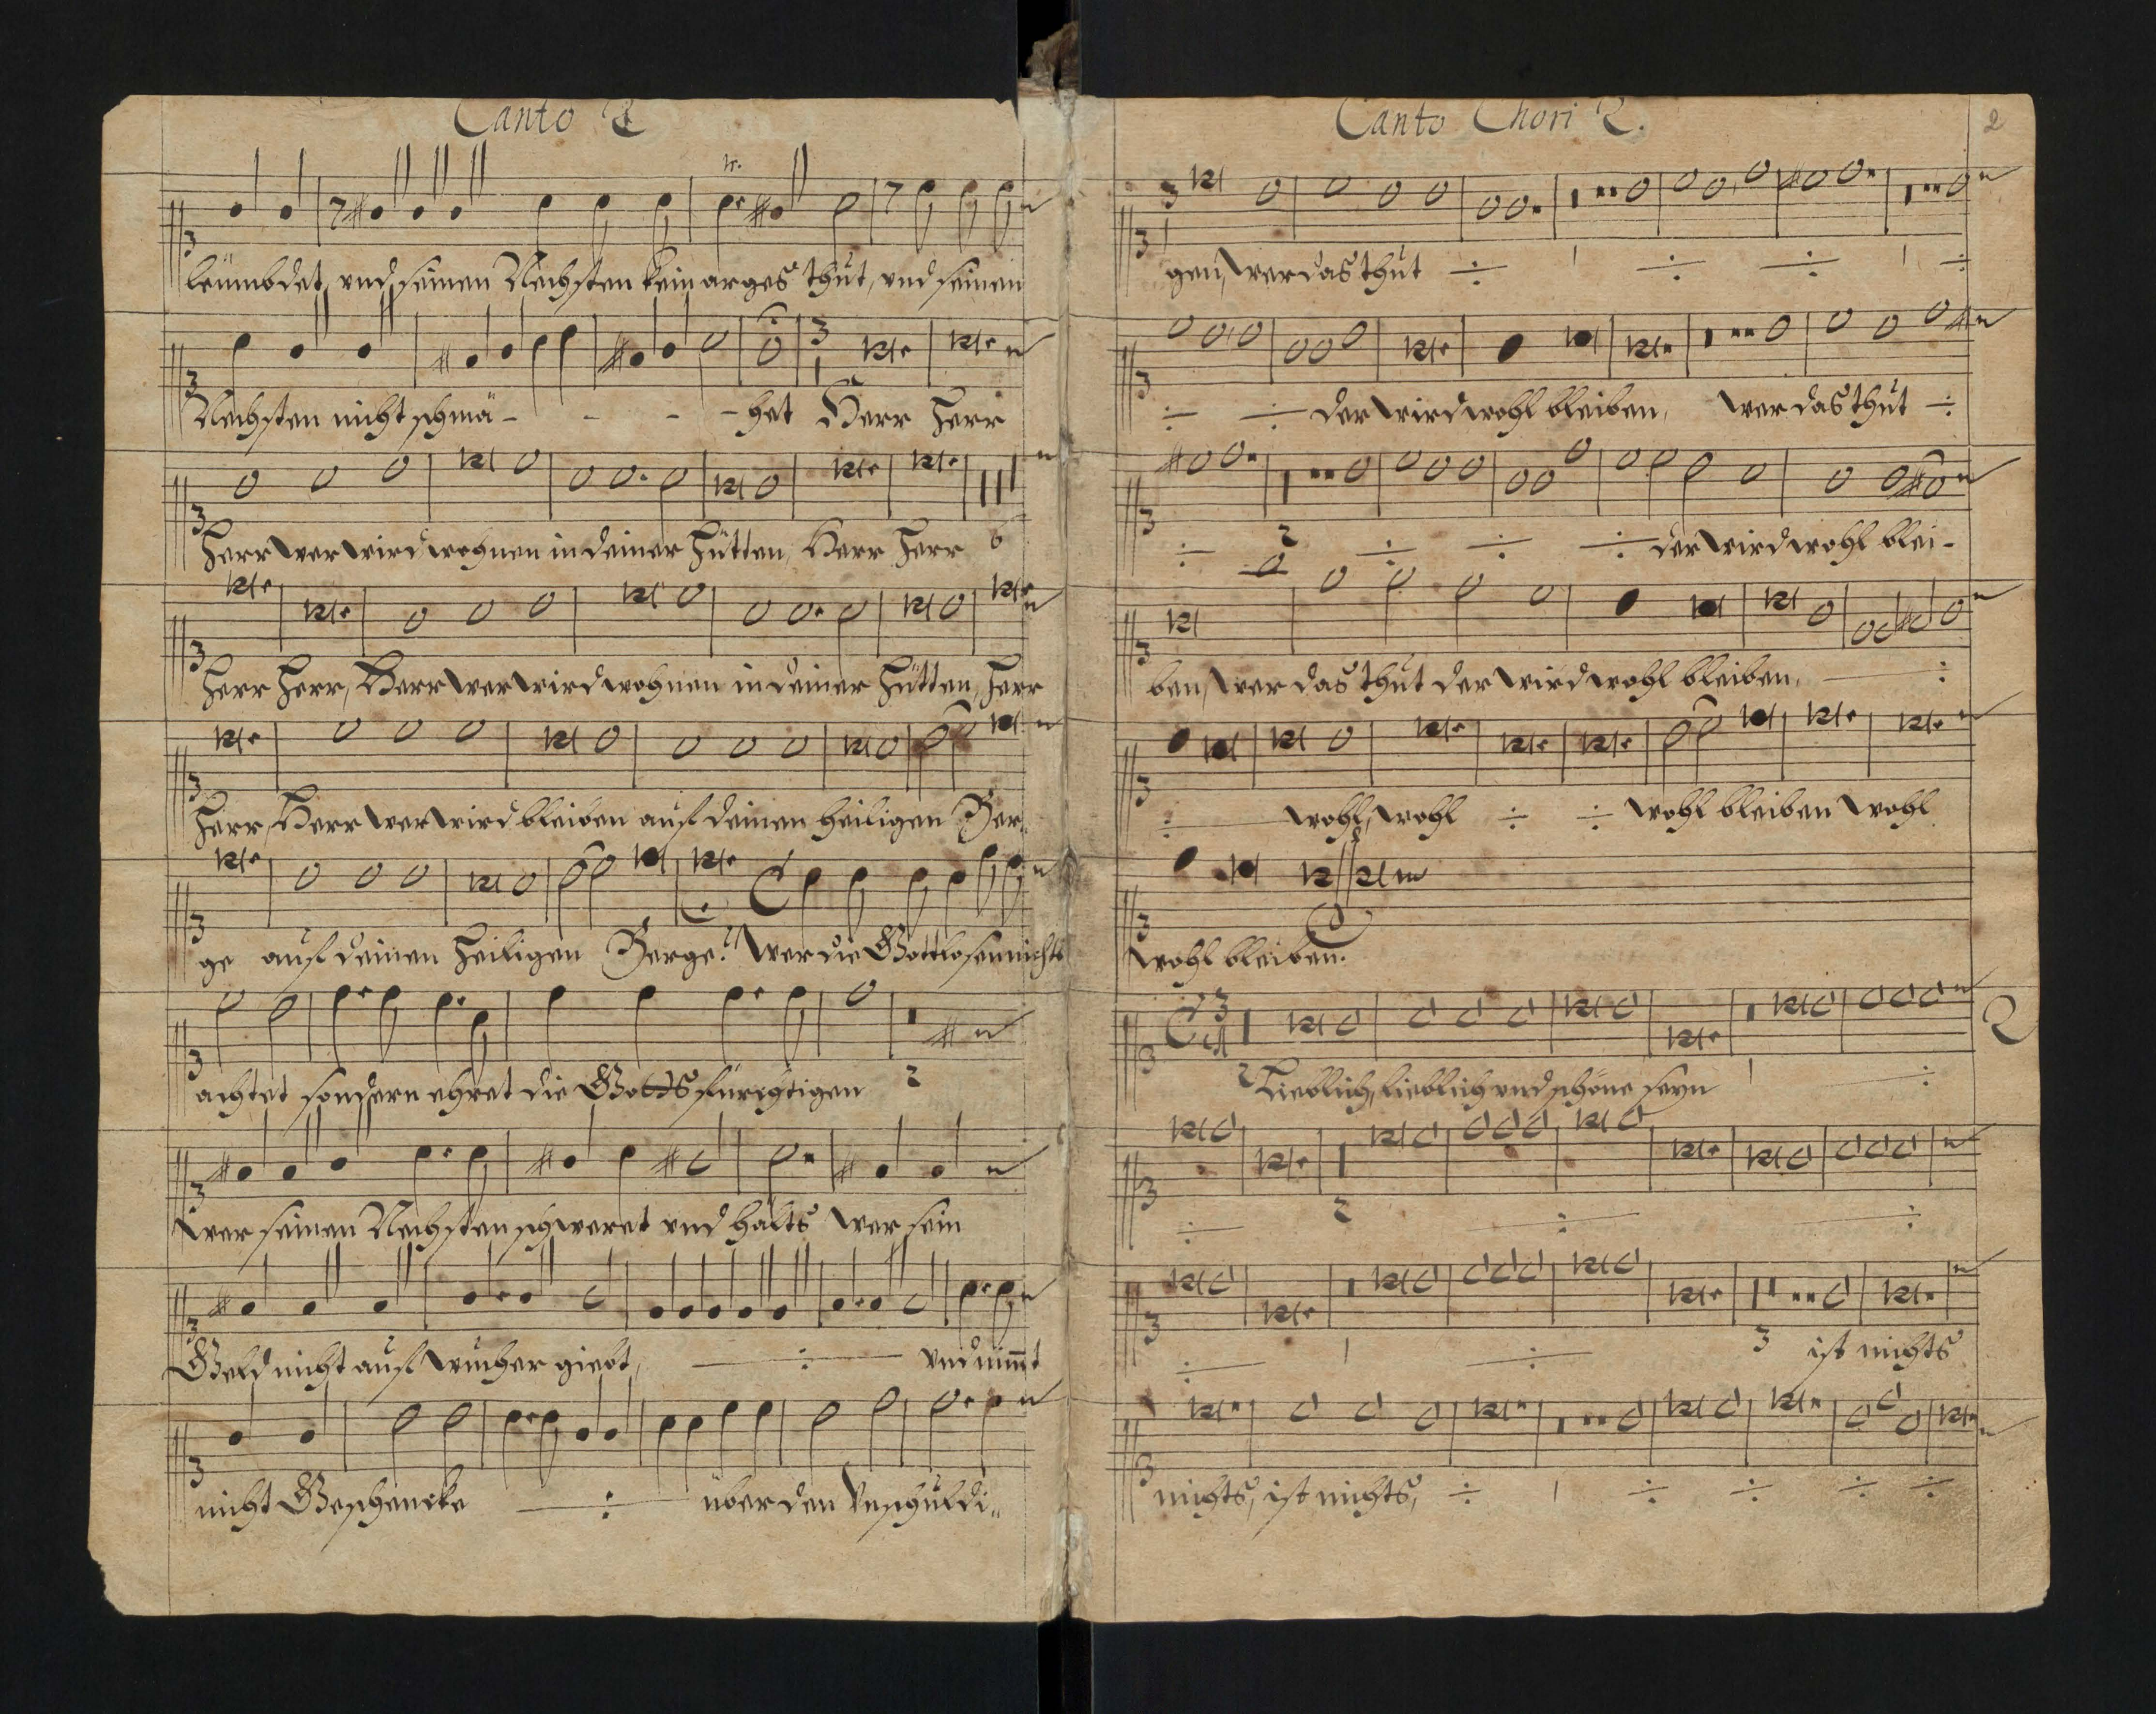 Canto 2
leümbdet, vnd seinen Nechsten kein arges thut, vnd seinen
Nechsten nicht schmä - - - - het Herr Herr
Herr wer wird wohnen in deiner Hütten, Herr Herr 6
Herr Herr, Herr wer wird wohnen in deiner Hütten, Herr
Herr, Herr wer wird bleiben auf deinen heiligen Ber-
ge auf deinen Heiligen Berge? Wer die Gottlosen nichts
achtet sondern ehret die Gottsfürchtigen 2
wer seinen Nechsten schweret vnd hälts wer sein
Geld nicht auf wucher giebt, ÷ vnd nim̄t
nicht Geschencke ÷ über den Vnschuldi-
Canto Chori 2.
2
gen, wer das thut ÷ 1 ÷ ÷ 1 ÷
÷ ÷ der wird wohl bleiben, wer das thut ÷
÷ 2 ÷ ÷ ÷ der wird wohl blei-
ben, wer das thut der wird wohl bleiben, ÷
÷ wohl, wohl ÷ ÷ wohl bleiben wohl
wohl bleiben.
2 Lieblich, lieblich vnd schöne seyn 1 ÷
÷ 2 ÷ ÷
÷ 1 ÷ 3 ist nichts
nichts, ist nichts, ÷ 1 ÷ ÷ ÷ ÷